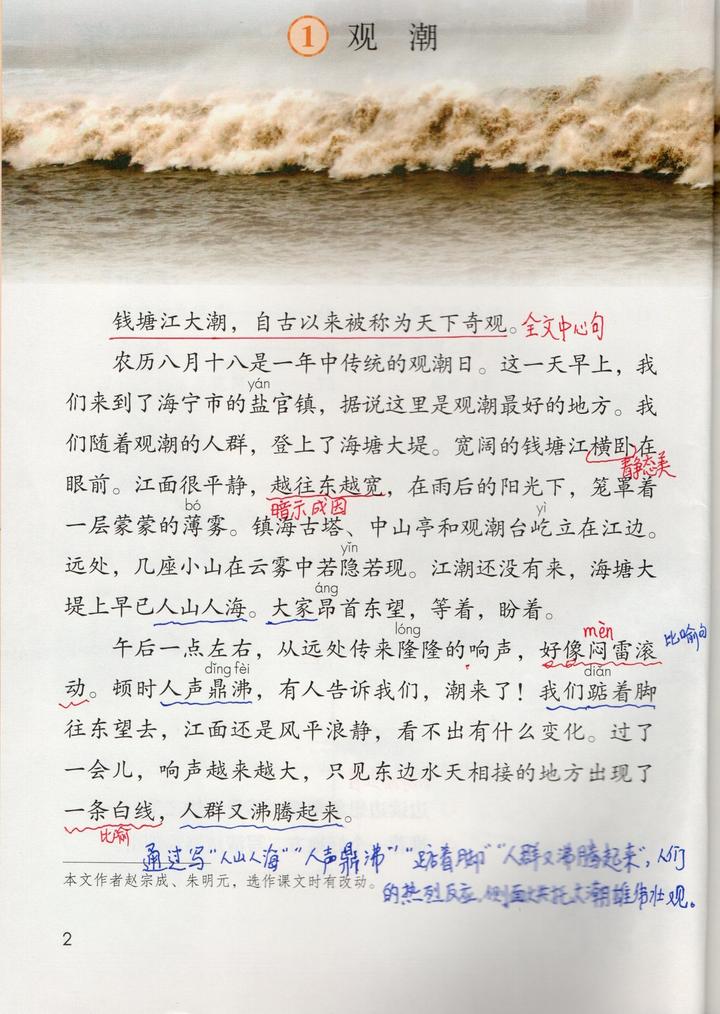 1 观 潮
钱塘江大潮，自古以来被称为天下奇观。全文中心句
农历八月十八是一年中传统的观潮日。这一天早上，我
yán
们来到了海宁市的盐官镇，据说这里是观潮最好的地方。我
们随着观潮的人群，登上了海塘大堤。宽阔的钱塘江横卧在
静态美
眼前。江面很平静，越往东越宽，在雨后的阳光下，笼罩着
暗示成因
bó yì
一层蒙蒙的薄雾。镇海古塔、中山亭和观潮台屹立在江边。
yǐn
远处，几座小山在云雾中若隐若现。江潮还没有来，海塘大
áng
堤上早已人山人海。大家昂首东望，等着，盼着。
lóng mèn
午后一点左右，从远处传来隆隆的响声，好像闷雷滚
比喻句
dǐng fèi diǎn
动。顿时人声鼎沸，有人告诉我们，潮来了！我们踮着脚
往东望去，江面还是风平浪静，看不出有什么变化。过了
一会儿，响声越来越大，只见东边水天相接的地方出现了
一条白线，人群又沸腾起来。
比喻
通过写“人山人海”“人声鼎沸”“踮着脚”“人群又沸腾起来”，人们
的热烈反应，侧面烘托大潮雄伟壮观。
本文作者赵宗成、朱明元，选作课文时有改动。
2